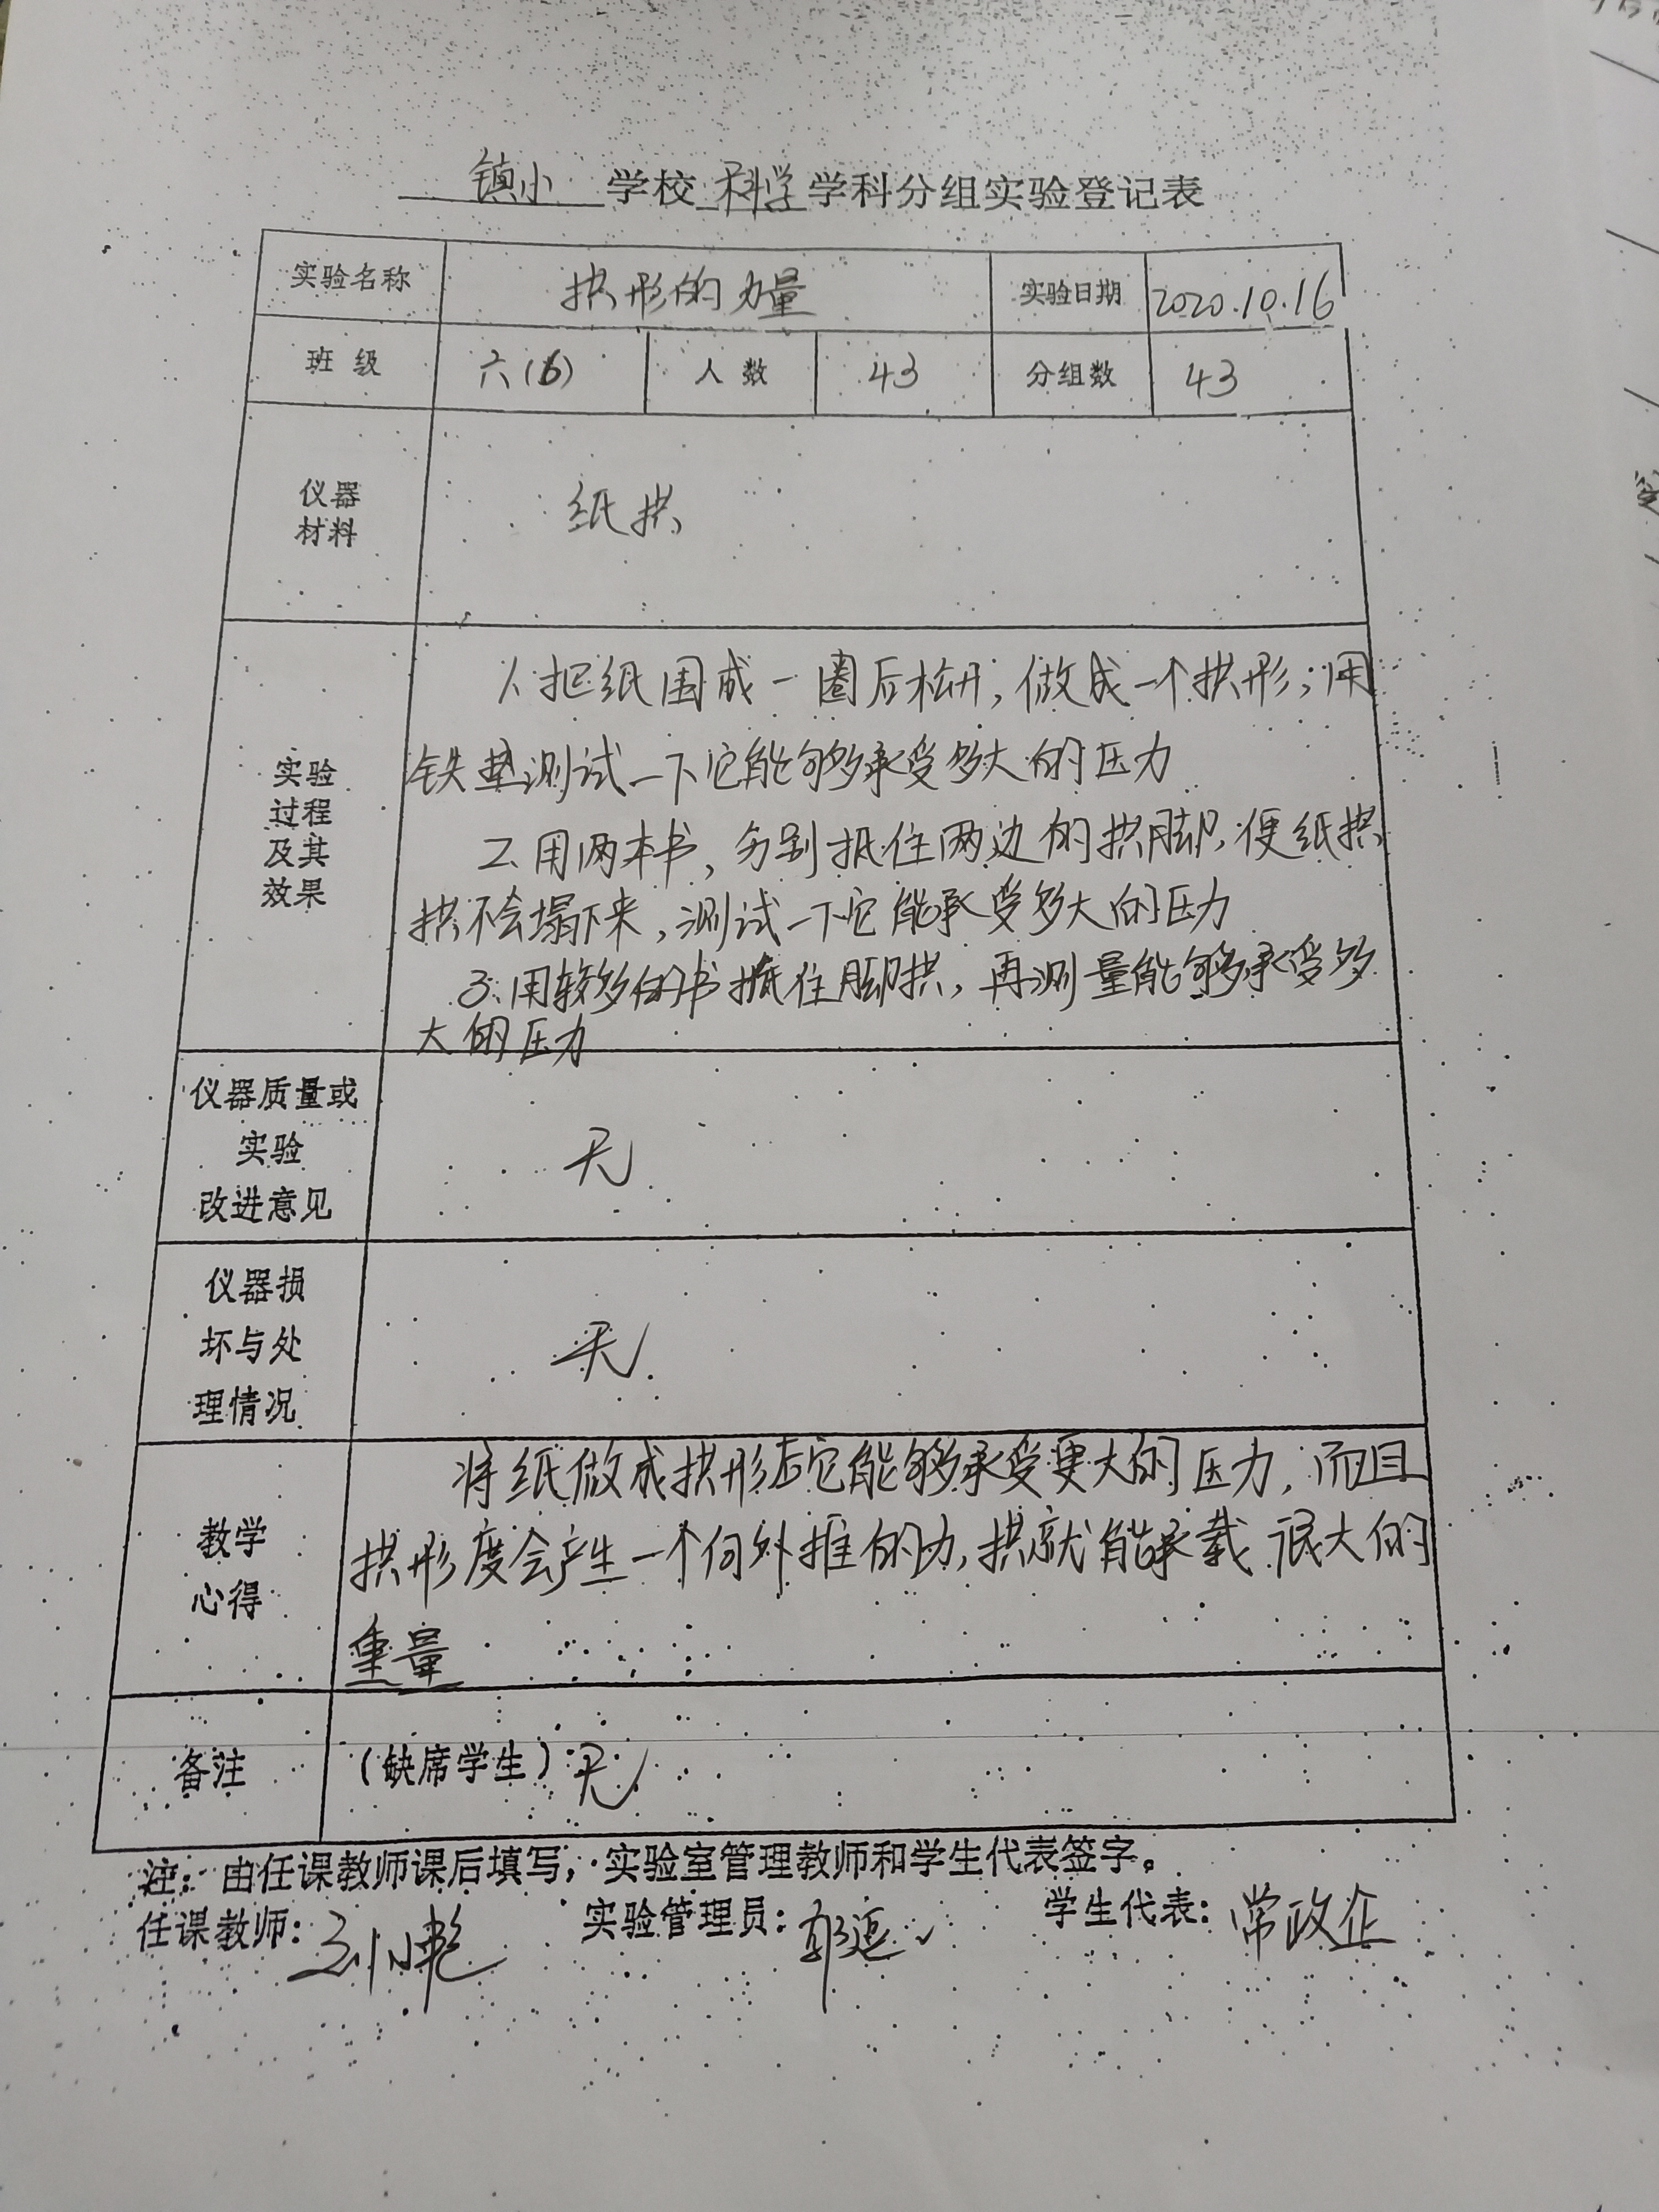 镇小 学校 科学 学科分组实验登记表
实验名称 拱形的力量 实验日期 2020.10.16
班 级 六(6) 人 数 43 分组数 43
仪器
材料
纸拱
实验
过程
及其
效果
1.把纸围成一圈后松开,做成一个拱形;用
铁垫测试一下它能够承受多大的压力
2.用两本书,分别抵住两边的拱脚,使纸拱
拱不会塌下来,测试一下它能承受多大的压力
3.用较多的书抵住脚拱,再测量能够承受多
大的压力
仪器质量或
实验
改进意见
无
仪器损
坏与处
理情况
无
教学
心得
将纸做成拱形后它能够承受更大的压力,而且
拱形度会产生一个向外推的力,拱就能承载很大的
重量
备注 (缺席学生) 无
注:由任课教师课后填写,实验室管理教师和学生代表签字。
任课教师: 刘小艳 实验管理员: 学生代表: 常政企